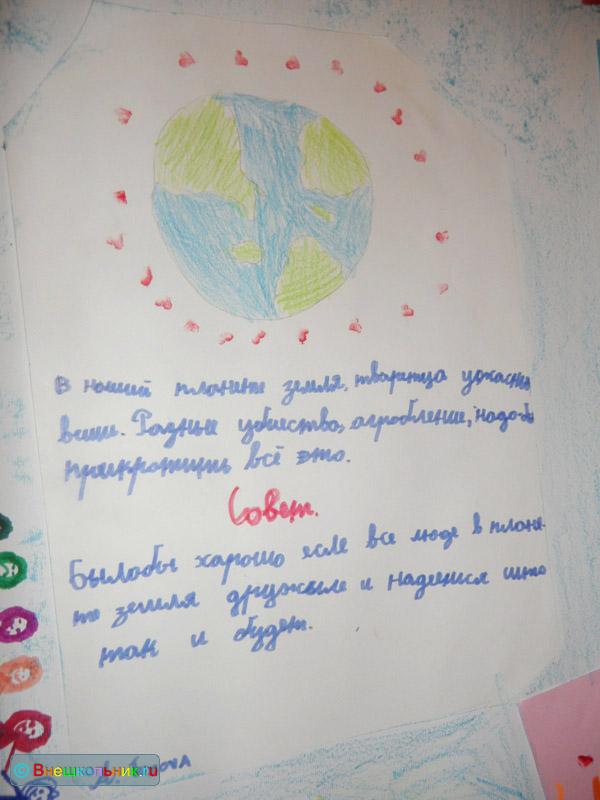 В нашей планите земля, тваритца ужасные
вещи. Разные убиества, агробление, надо-бы
прикротить всё это.
Совет.
Былобы харошо есле все люде в плоне-
те земля дружыле и надеемся што
так и будет.
© Внешкольник.ru